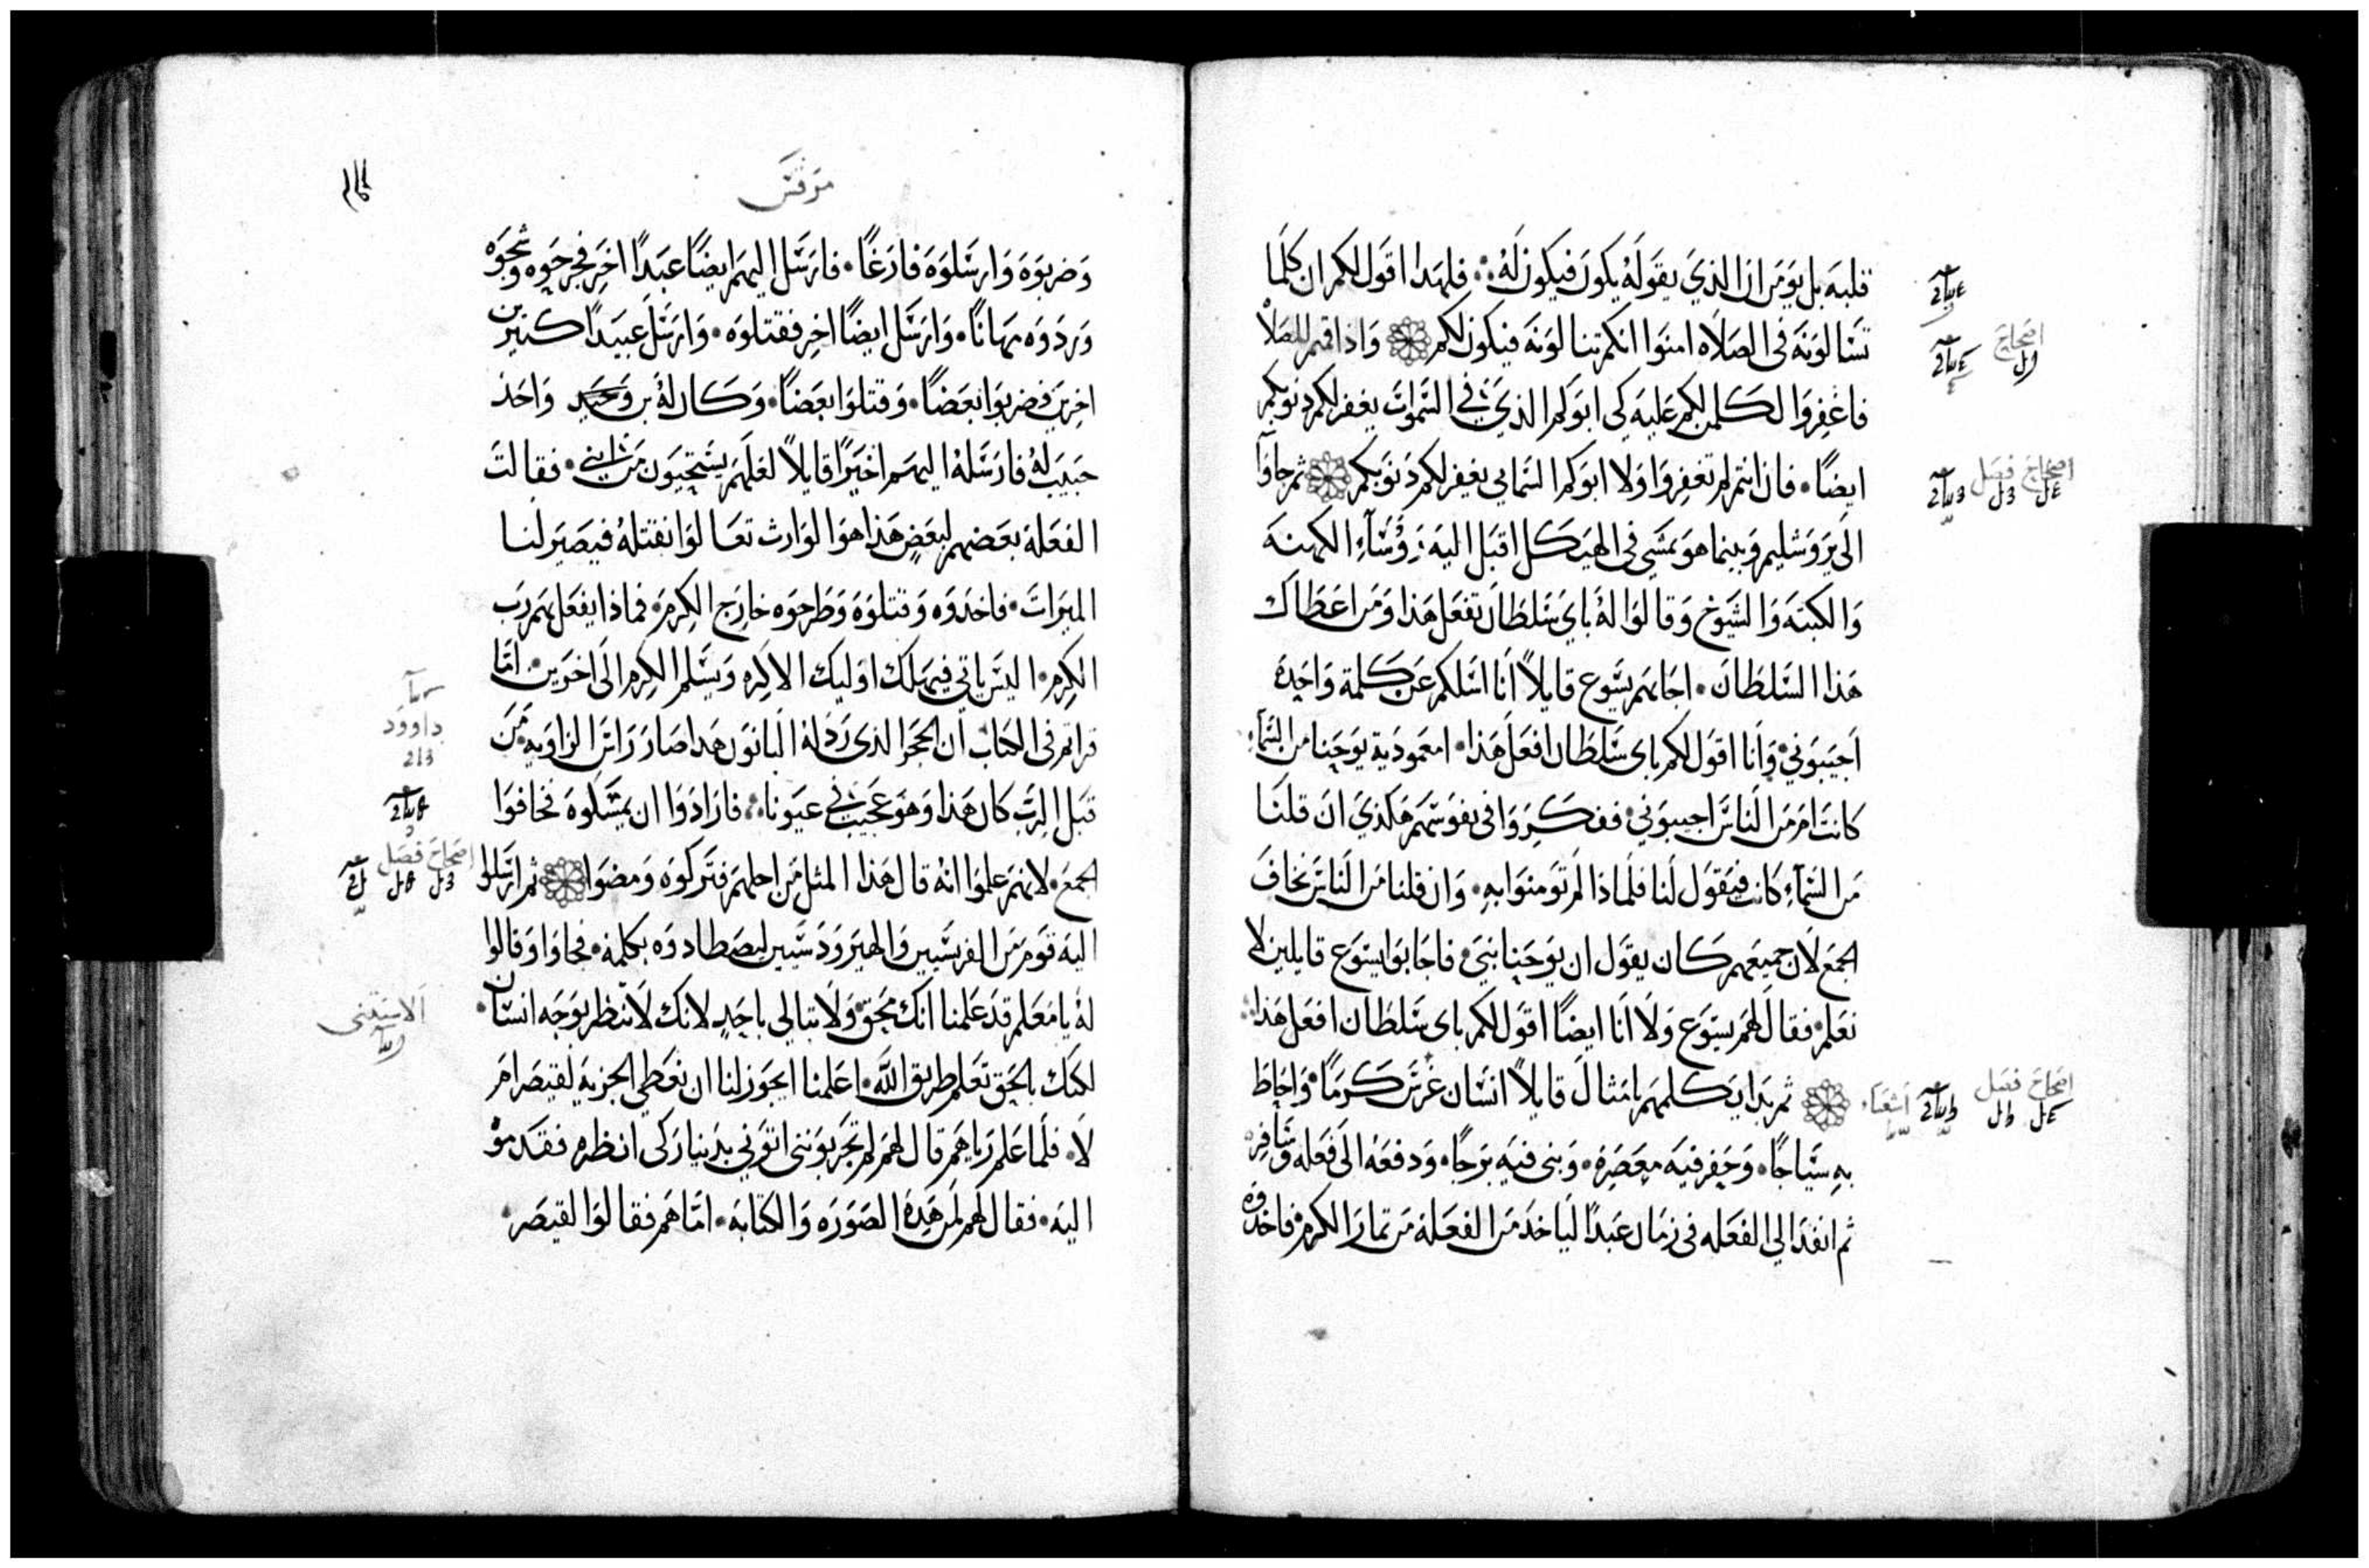 قلبه بل يومن ان الذي يقوله يكون فيكون له فلهدا اقول لكم ان كلما
تسالونه في الصلاه امنوا انكم تنالونه فيكون لكم واذا قمتم للصلاة
فاغفروا لكل من لكم عليه كي ابوكم الذي في السموات يغفر لكم ذنوبكم
ايضًا فان انتم لم تغفروا ولا ابوكم السمايي يغفر لكم ذنوبكم ثم جاوا
الى يروشليم وبينما هو يمشي في الهيكل اقبل اليه رؤساء الكهنه
والكتبه والشيوخ وقالوا له باي سلطان تفعل هذا ومن اعطاك
هذا السلطان اجابهم يسوع قايلاً انا اسلكم عن كلمة واحدة
اجيبوني وانا اقول لكم باى سلطان افعل هذا امعمودية يوحنا من السماء
كانت ام من الناس اجيبوني ففكروا في نفوسهم هكذي ان قلنا
من السماء كانت فيقول لنا فلماذا لم تومنوا به وان قلنا من الناس نخاف
الجمع لان جميعهم كان يقول ان يوحنا نبي فاجابوا يسوع قايلين لا
نعلم فقال لهم يسوع ولا انا ايضًا اقول لكم باى سلطان افعل هذا
ثم بدا يكلمهم بامثال قايلاً انسان غرس كرمًا واحاط
به سياجًا وحفر فيه معصرة وبنى فيه برجًا ودفعه الى فعله وسافر
ثم انفذ الي الفعله في زمان عبدًا لياخد من الفعلة من تمار الكرم فاخدوه
اصحاح
اصحاح فصل
اصحاح فصل
اشعياء
مرقس
وضربوه وارسلوه فارغًا فارسل اليهم ايضًا عبدًا اخر فجرحوه وشجوه
وردوه مهانًا وارسل ايضًا اخر فقتلوه وارسل عبيدًا كتيرين
اخرين فضربوا بعضًا وقتلوا بعضًا وكان له بن وحيد واحد
حبيب له فارسله اليهم اخيرًا قايلاً لعلهم يستحيون من ابني فقالت
الفعلة بعضهم لبعض هذا هو الوارث تعالوا نقتله فيصير لنا
الميرات فاخدوه وقتلوه وطرحوه خارج الكرم فماذا يفعل بهم رب
الكرم اليس ياتي فيهلك اوليك الاكره ويسلم الكرم الى اخرين اما
قراتم في الكتاب ان الحجر الذي رذله البانون هدا صار راس الزاويه من
قبل الرب كان هذا وهو عجيب في عيوننا فارادوا ان يمسكوه فخافوا
الجمع لانهم علموا انه قال هذا المثل من اجلهم فتركوه ومضوا ثم ارسلوا
اليه قوم من الفريسيين والهيرودسيين ليصطادوه بكلمة فجاوا وقالوا
له يا معلم قد علمنا انك محق ولا تبالي باحد لانك لا تنظر بوجه انسان
لكنك بالحق تعلم طريق الله اعلمنا ايجوز لنا ان نعطي الجزية لقيصر ام
لا فلما علم رياهم قال لهم لم تجربونني اتوني بدينار كي انظره فقدموا
اليه فقال لهم لمن هذة الصورة والكتابة اما هم فقالوا لقيصر
داوود
اصحاح فصل
الاستثنى